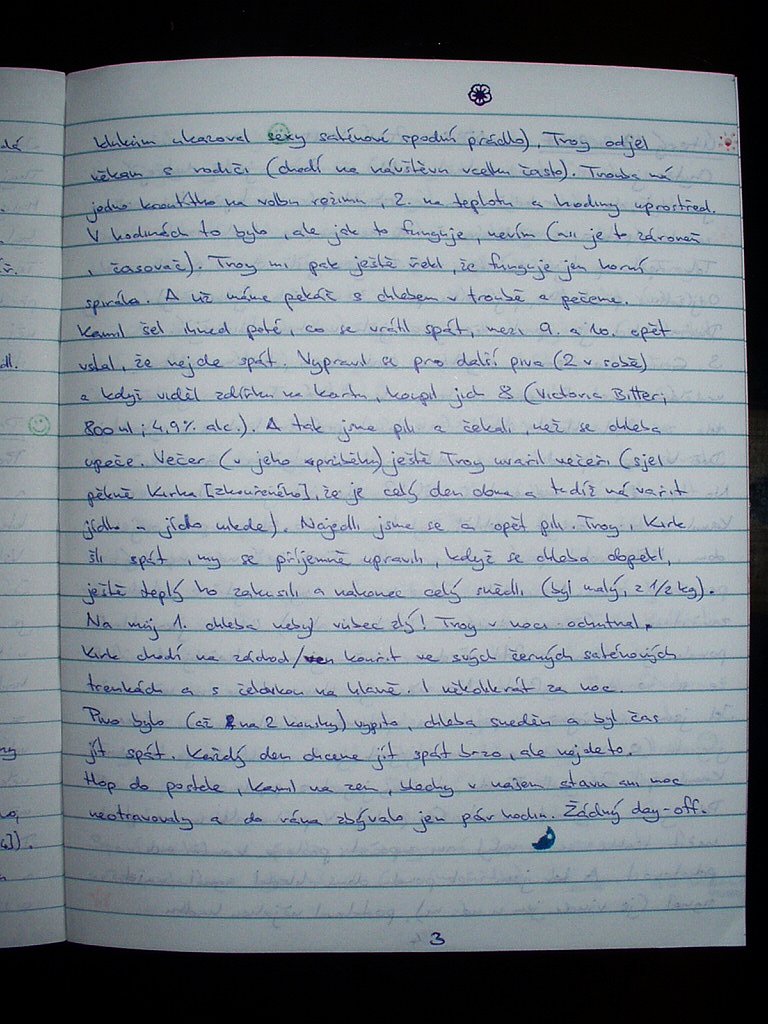 klukům ukazoval sexy saténové spodní prádlo). Troy odjel
někam s rodiči (chodí na návštěvu vcelku často). Trouba má
jedno kroutítko na volbu režimu, 2. na teplotu a hodiny uprostřed.
V hodinách to bylo, ale jak to funguje, nevím (asi je to zároveň
i časovač). Troy mi pak ještě řekl, že funguje jen horní
spirála. A už máme pekáč s chlebem v troubě a pečeme.
Kamil šel ihned poté, co se vrátil spát, mezi 9. a 10. opět
vstal, že nejde spát. Vypravil se pro další piva (2 v sobě)
a když viděl na kartu, koupil jich 8 (Victoria Bitter;
800 ml; 4,9% alc.). A tak jsme pili a čekali, než se chleba
upeče. Večer (v jeho průběhu) ještě Troy uvařil večeři (sjel
pěkně Kirka [zkouřeného], že je celý den doma a tudíž má vařit
jídlo a jídlo nikde). Najedli jsme se a opět pili. Troy, Kirk
šli spát, my se příjemně upravili, když se chleba dopekl,
ještě teplý ho zakusili a nakonec celý snědli (byl malý, z 1/2 kg).
Na můj 1. chleba nebyl vůbec zlý! Troy v noci ochutnal.
Kirk chodí na záchod/ven kouřit ve svých černých saténových
trenkách a s čelovkou na hlavě. I několikrát za noc.
Pivo bylo (až na 2 kousky) vypito, chleba sněden a byl čas
jít spát. Každý den chceme jít spát brzo, ale nejde to.
Hop do postele, Kamil na zem, blechy v našem stavu ani moc
neotravovaly a do rána zbývalo jen pár hodin. Žádný day-off.
3